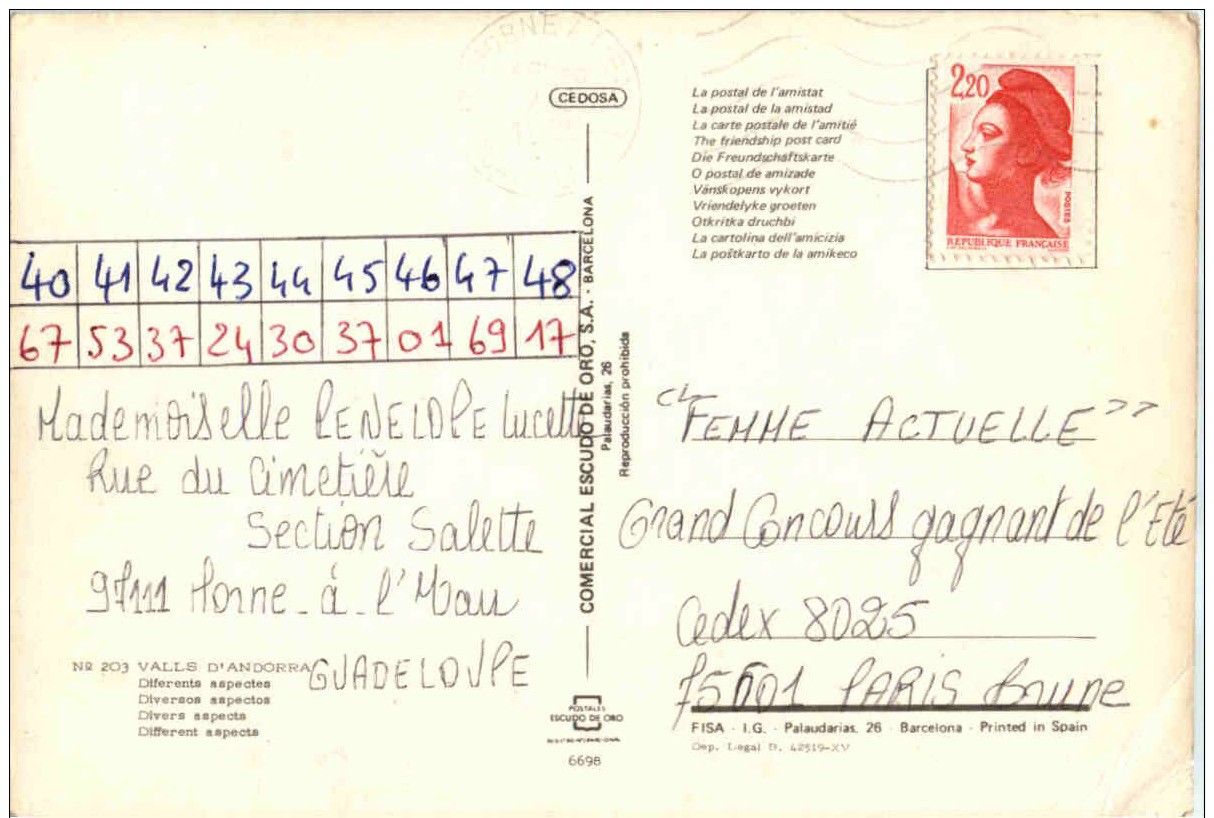 CEDOSA
La postal de l'amistat
La postal de la amistad
La carte postale de l'amitié
The friendship post card
Die Freundschaftskarte
O postal de amizade
Vänskopens vykort
Vriendelyke groeten
Otkritka druchbi
La cartolina dell'amicizia
La poŝtkarto de la amikeco
2,20
POSTES
REPUBLIQUE FRANÇAISE
40 41 42 43 44 45 46 47 48
67 53 37 24 30 37 01 69 17
Mademoiselle PENELOPE Lucette
Rue du Cimetière
Section Salette
97111 Morne-à-l'Eau
GUADELOUPE
Nº 203 VALLS D'ANDORRA
Diferents aspectes
Diversos aspectos
Divers aspects
Different aspects
COMERCIAL ESCUDO DE ORO, S.A. - BARCELONA
Palaudarias, 26
Reproducción prohibida
POSTALES
ESCUDO DE ORO
6698
"FEMME ACTUELLE"
Grand Concours gagnant de l'Eté
Cedex 8025
75601 PARIS Brune
FISA - I.G. - Palaudarias, 26 - Barcelona - Printed in Spain
Dep. Legal B. 42519-XV